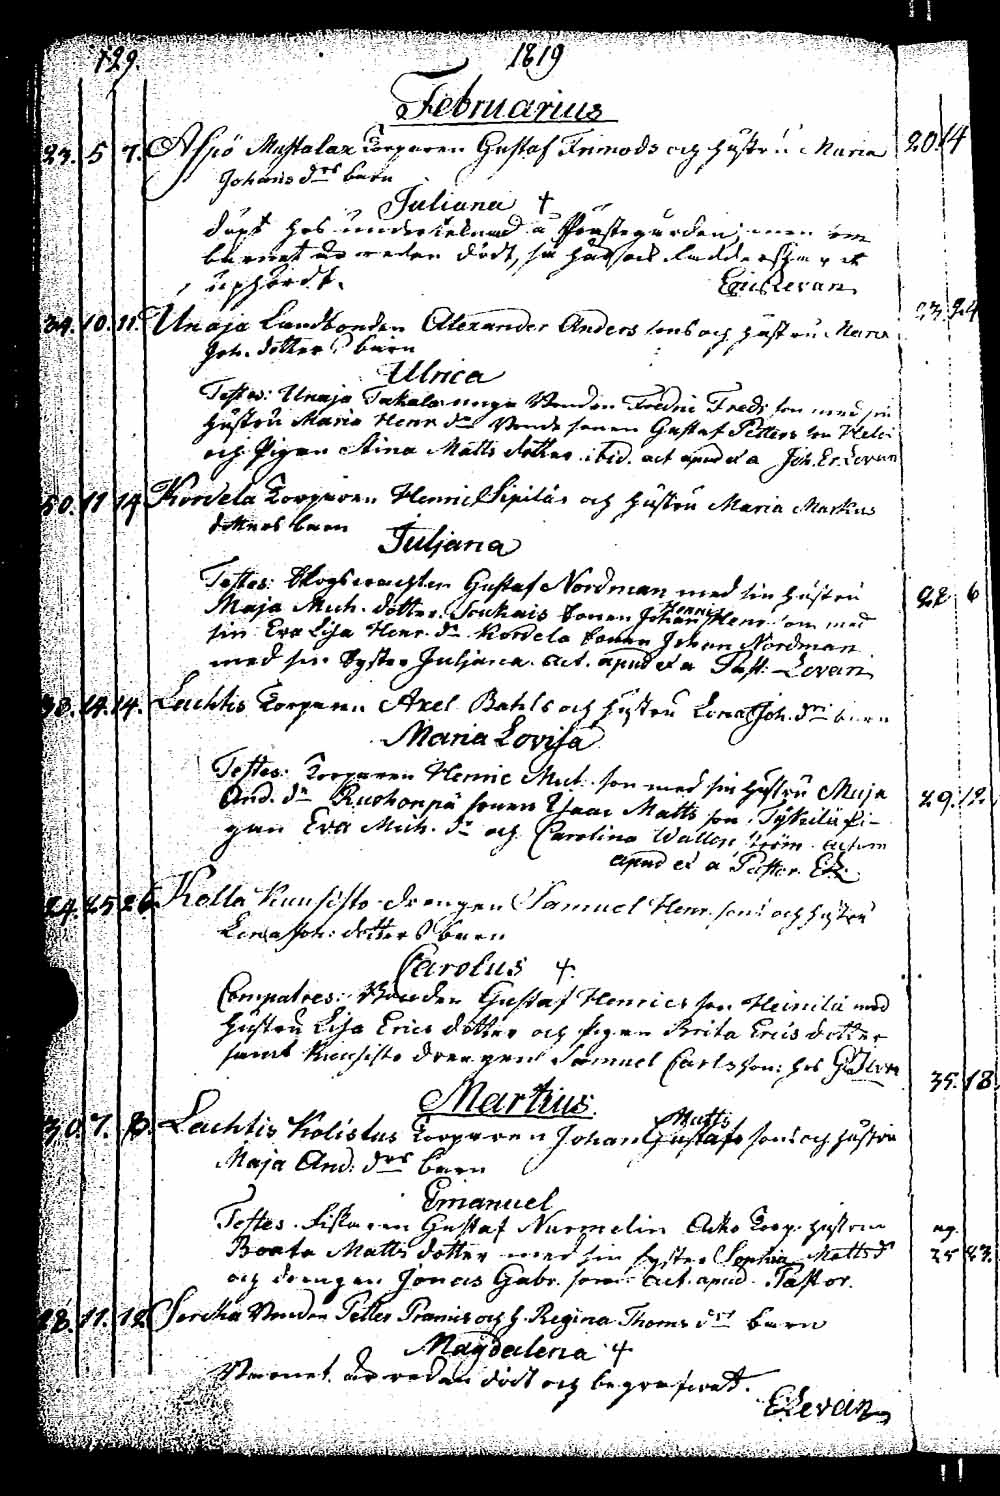 129. 1819
Februarius
23. 5 7. Torparen Gustaf och hustru Maria
Johans drs barn
Juliana +
döpt hos undertecknad å Prästgården, men
barnet är redan dödt, så har ock
uphördt.
Eric Levan
34. 10. 11. Unaja Landbonden Alexander Anders sons och hustru Maria
Joh. dotters barn
Ulrica
Testes: Unaja unga Bonden Fredric Freds son med sin
hustru Maria Henr. dr Bonde sonen Gustaf Petters son
och Pigan Stina Matts dotter ibid. act. apud et a Joh. Er. Levan
50. 11 14. Kordela Torparen Henric Sipiläs och hustru Maria Markus
dotters barn
Juljana
Testes: Skogswachten Gustaf Nordman med sin hustru
Maja Mich. dotter. sonen Johan Henric Henr. son med
sin Eva Lisa Henr. dr Kordela sonen Johan Nordman
med sin Syster Juljana. act. apud et a Past. Levan
38. 14. 14. Lachtis Torparen Axel och hustru Lena Joh. drs barn
Maria Lovisa
Testes: Torparen Henric Mich. son med sin hustru Maja
And. dr sonen Isaac Matts son, pi-
gan Eva Mich. dr och Carolina Wallenström. actum
apud et a Pastor. EL.
24. 25 26. Kolla Kuusisto drengen Samuel Henr. sons och hustru
Lena Joh. dotters barn
Carolus +
Compatres: Bonden Gustaf Henrics son Heinilä med
hustru Lisa Erics dotter och pigan Brita Erics dotter
samt Kuusisto drengen Samuel Carlsson: hos
Martius.
30. 7. 8. Lachtis Kolistus Torparen Johan Matts Gustafs sons och hustru
Maja And. drs barn
Emanuel
Testes. Fiskaren Gustaf Nurmelin Torp. hustrun
Beata Matts dotter med sin syster Sophia Matts dr
och drengen Jonas Gabr. son. Act. apud Pastor.
28. 11. 12. Sorcka Bonden Petter och h. Regina Thoms drs barn
Magdalena +
Barnet är redan dödt och begrafwet.
ELevan
20. 14
23. 24
28 6
29. 12.
35. 18.
ng.
25 23.